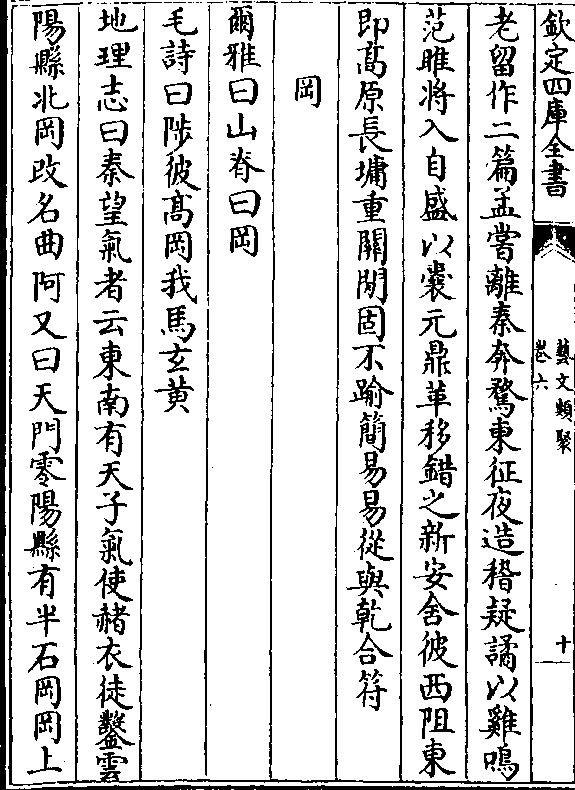 欽定四庫全書
藝文類聚
卷六
十
老留作二篇孟嘗離秦奔騖東征夜造稽疑譎以雞鳴
范雎將入自盛以囊元鼎革移錯之新安舍彼西阻東
即髙原長墉重關閒固不踰簡易易從與乾合符
岡
爾雅曰山脊曰岡
毛詩曰陟彼髙岡我馬玄黄
地理志曰秦望氣者云東南有天子氣使赭衣徒鑿雲
陽縣北岡改名曲阿又曰天門零陽縣有半石岡岡上